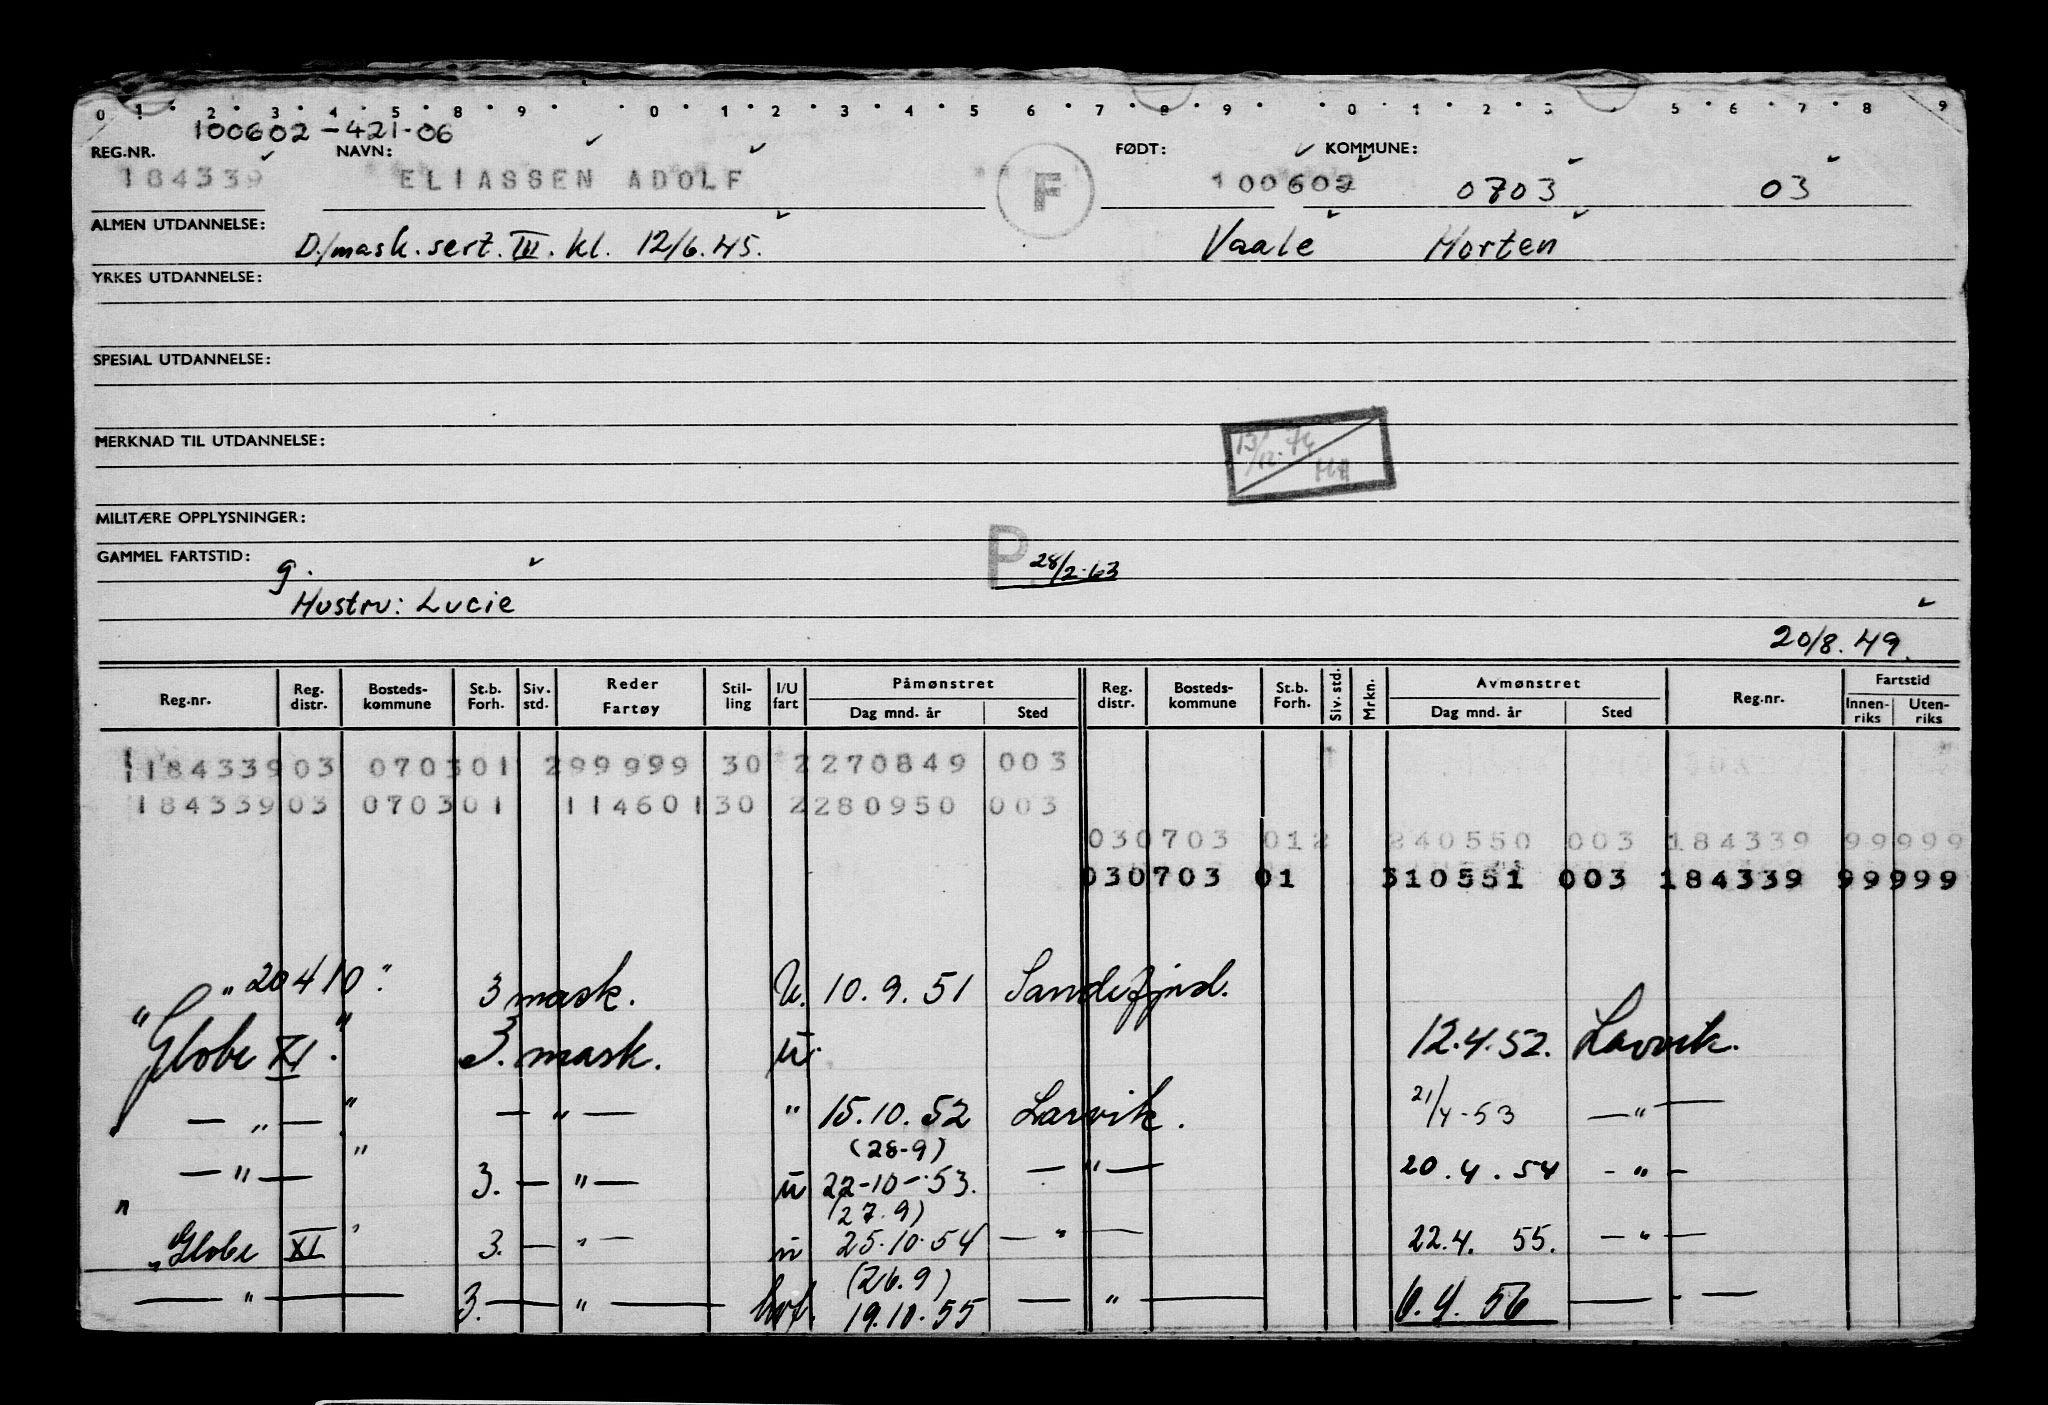 0 1 2 3 4 5 8 9 0 1 2 3 4 5 6 7 8 9 0 1 2 3 5 6 7 8 9
100602-421-06
REG.NR. NAVN: FØDT: KOMMUNE:
184339 ELIASSEN ADOLF F 100602 0703 03
ALMEN UTDANNELSE: D./mask.sert. III. kl. 12/6.45. Vaale Horten
YRKES UTDANNELSE:
SPESIAL UTDANNELSE:
MERKNAD TIL UTDANNELSE:
13/12.74 HA
MILITÆRE OPPLYSNINGER:
GAMMEL FARTSTID: g. P. 28/2.63
Hustru: Lucie
20/8.49.
Reg.nr. Reg. distr. Bosteds-kommune St.b. Forh. Siv. std. Reder Fartøy Stil-ling I/U fart Påmønstret Dag mnd. år Sted Reg. distr. Bosteds-kommune St.b. Forh. Siv. std. Mrkn. Avmønstret Dag mnd. år Sted Reg.nr. Fartstid Innen-riks Uten-riks
118433903 070301 299999 30 2270849 003
18433903 070301 11460130 2280950 003
030703 012 240550 003 184339 99999
030703 01 310551 003 184339 99999
"20410" 3 mask. U. 10.9.51 Sandefjord.
"Globe XI." 3. mask. u. 12.4.52. Larvik.
— " — " — " — " 15.10.52 Larvik. 21/4-53 — " —
(28-9)
— " — " 3. — " — u 22-10-53. — " — 20.4.54 - " -
(27.9)
"Globe XI" 3. — " — u 25.10.54 — " — 22.4. 55. — " —
(26.9)
— " — 3. — " — hvf. 19.10.55 — " — 6.4.56 — " —